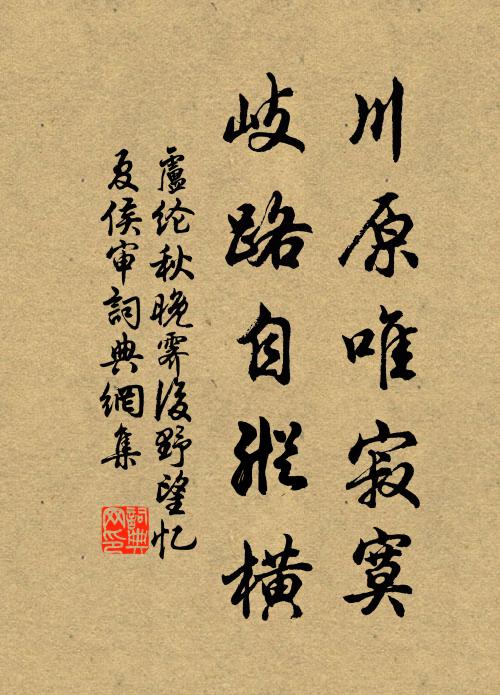 川原唯寂寞
岐路自縱橫
盧纶秋晚霽後野望忆
夏侯审詞典網集
詞典网印